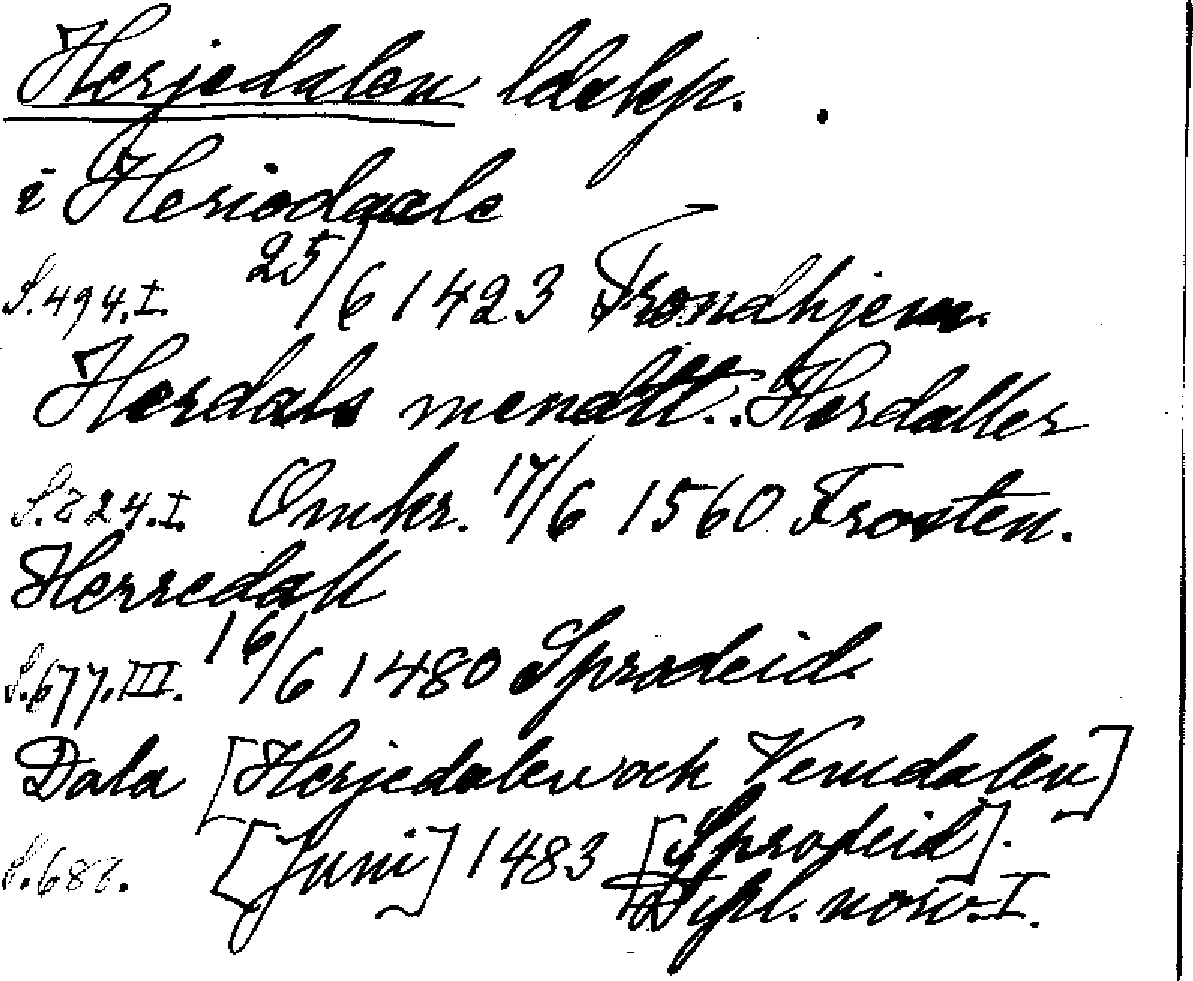 Herjedalen ldskp.
i Heriodaale
S.494.I. 25/6 1423 Trondhjem.
Herdals mendtt.. Herdaller
S.824.I. Omkr. 17/6 1560 Frosten.
Herredall
S.677.III. 16/6 1480 Sprodeid.
Dala [Herjedalen och Vemdalen]
S.682. [Juni] 1483 [Sprodeid].
Dipl. norv. I.